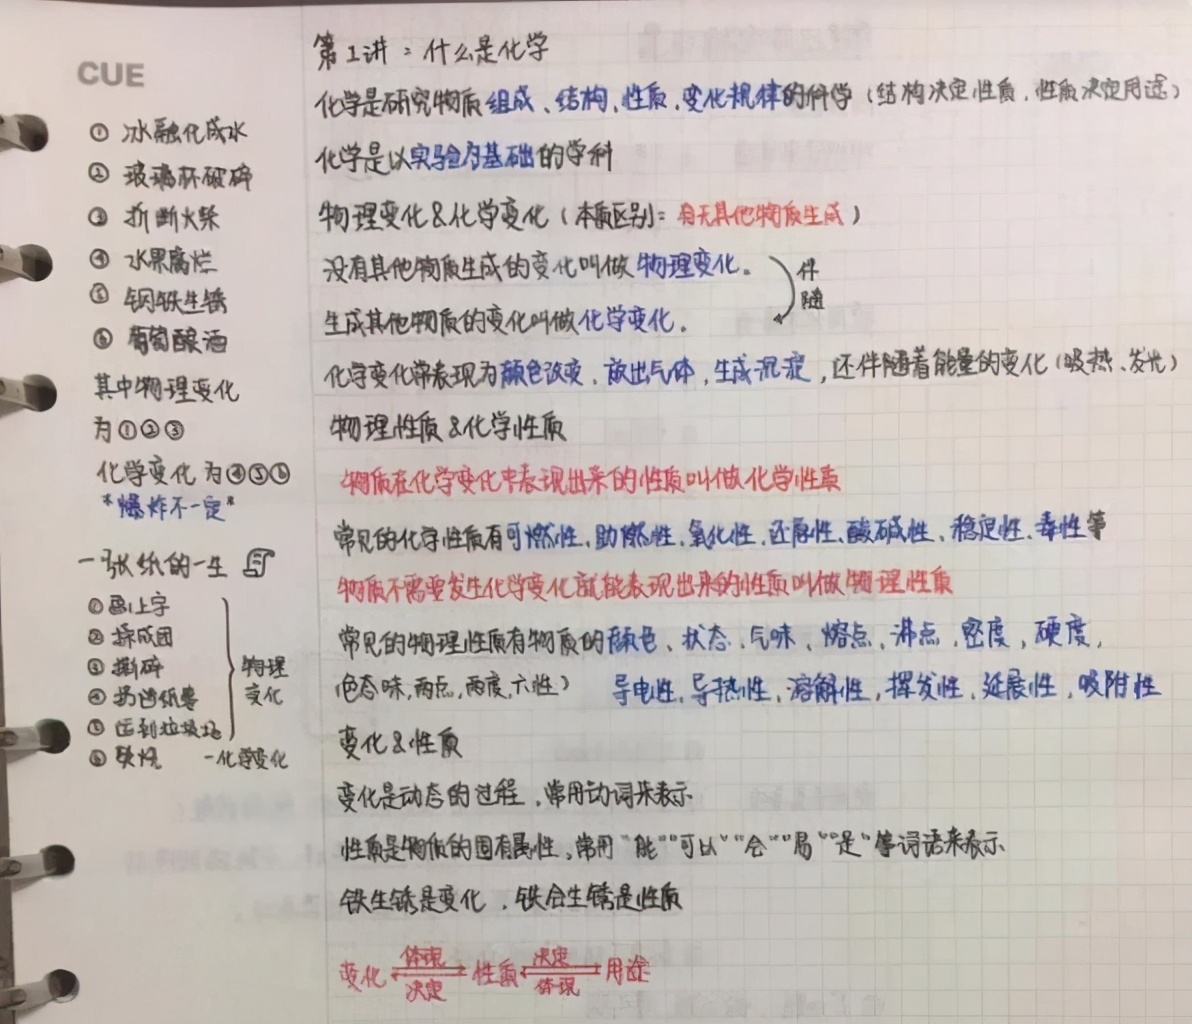 CUE
① 冰融化成水
② 玻璃杯破碎
③ 折断火柴
④ 水果腐烂
⑤ 钢铁生锈
⑥ 葡萄酿酒
其中物理变化
为①②③
化学变化为④⑤⑥
*爆炸不一定*
一张纸的一生
①画上字
②揉成团
③撕碎
④扔进纸篓
⑤运到垃圾场
物理
变化
⑥焚烧 -化学变化
第1讲：什么是化学
化学是研究物质组成、结构、性质、变化规律的科学(结构决定性质,性质决定用途)
化学是以实验为基础的学科
物理变化&化学变化(本质区别：有无其他物质生成)
没有其他物质生成的变化叫做物理变化。
伴
随
生成其他物质的变化叫做化学变化。
化学变化常表现为颜色改变、放出气体,生成沉淀,还伴随着能量的变化(吸热、发光)
物理性质&化学性质
物质在化学变化中表现出来的性质叫做化学性质
常见的化学性质有可燃性、助燃性、氧化性、还原性、酸碱性、稳定性、毒性等
物质不需要发生化学变化就能表现出来的性质叫做物理性质
常见的物理性质有物质的颜色、状态、气味、熔点、沸点,密度,硬度,
(色态味,两点,两度,六性) 导电性,导热性,溶解性,挥发性,延展性,吸附性
变化&性质
变化是动态的过程,常用动词来表示
性质是物质的固有属性,常用"能""可以""会""易""是"等词语来表示
铁生锈是变化,铁会生锈是性质
变化 体现 决定 性质 决定 体现 用途